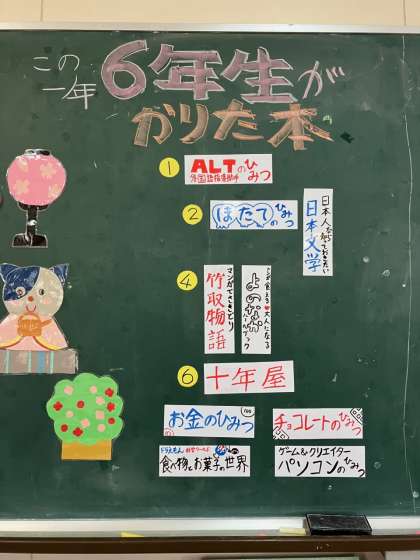 この
一年
6年生が
かりた本
① ALTのひみつ
外国語指導助手
② ほたてのひみつ
日本人なら知っておきたい
日本文学
④ マンガでさきどり
竹取物語
大人になる
よのなか
ルールブック
⑥ 十年屋
お金のひみつ
100
チョコレートのひみつ
ドラえもん 科学ワールド
食べ物とお菓子の世界
ゲーム&クリエイター
パソコンのひみつ